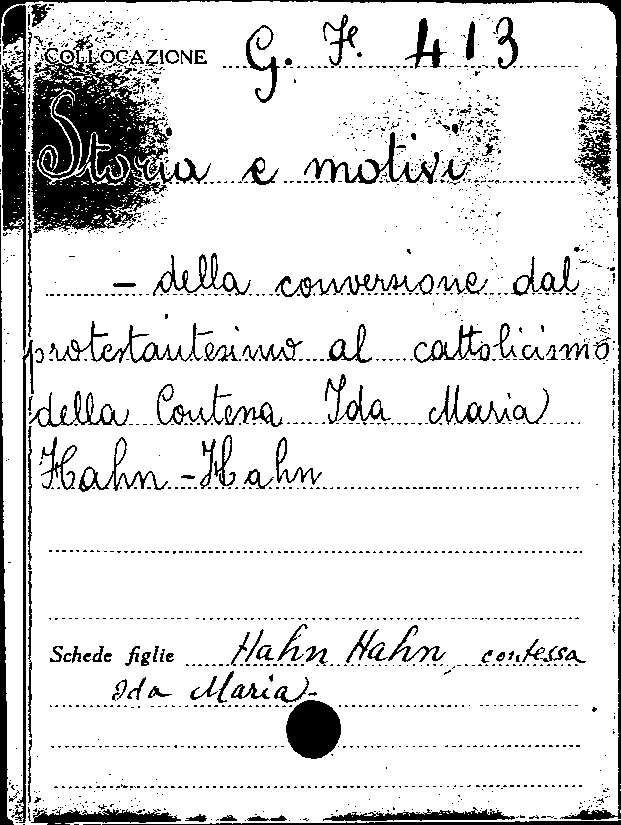 COLLOCAZIONE G. F. 413
Storia e motivi
- della conversione dal
protestantesimo al cattolicismo
della Contessa Ida Maria
Hahn-Hahn
Schede figlie Hahn Hahn, contessa
Ida Maria-